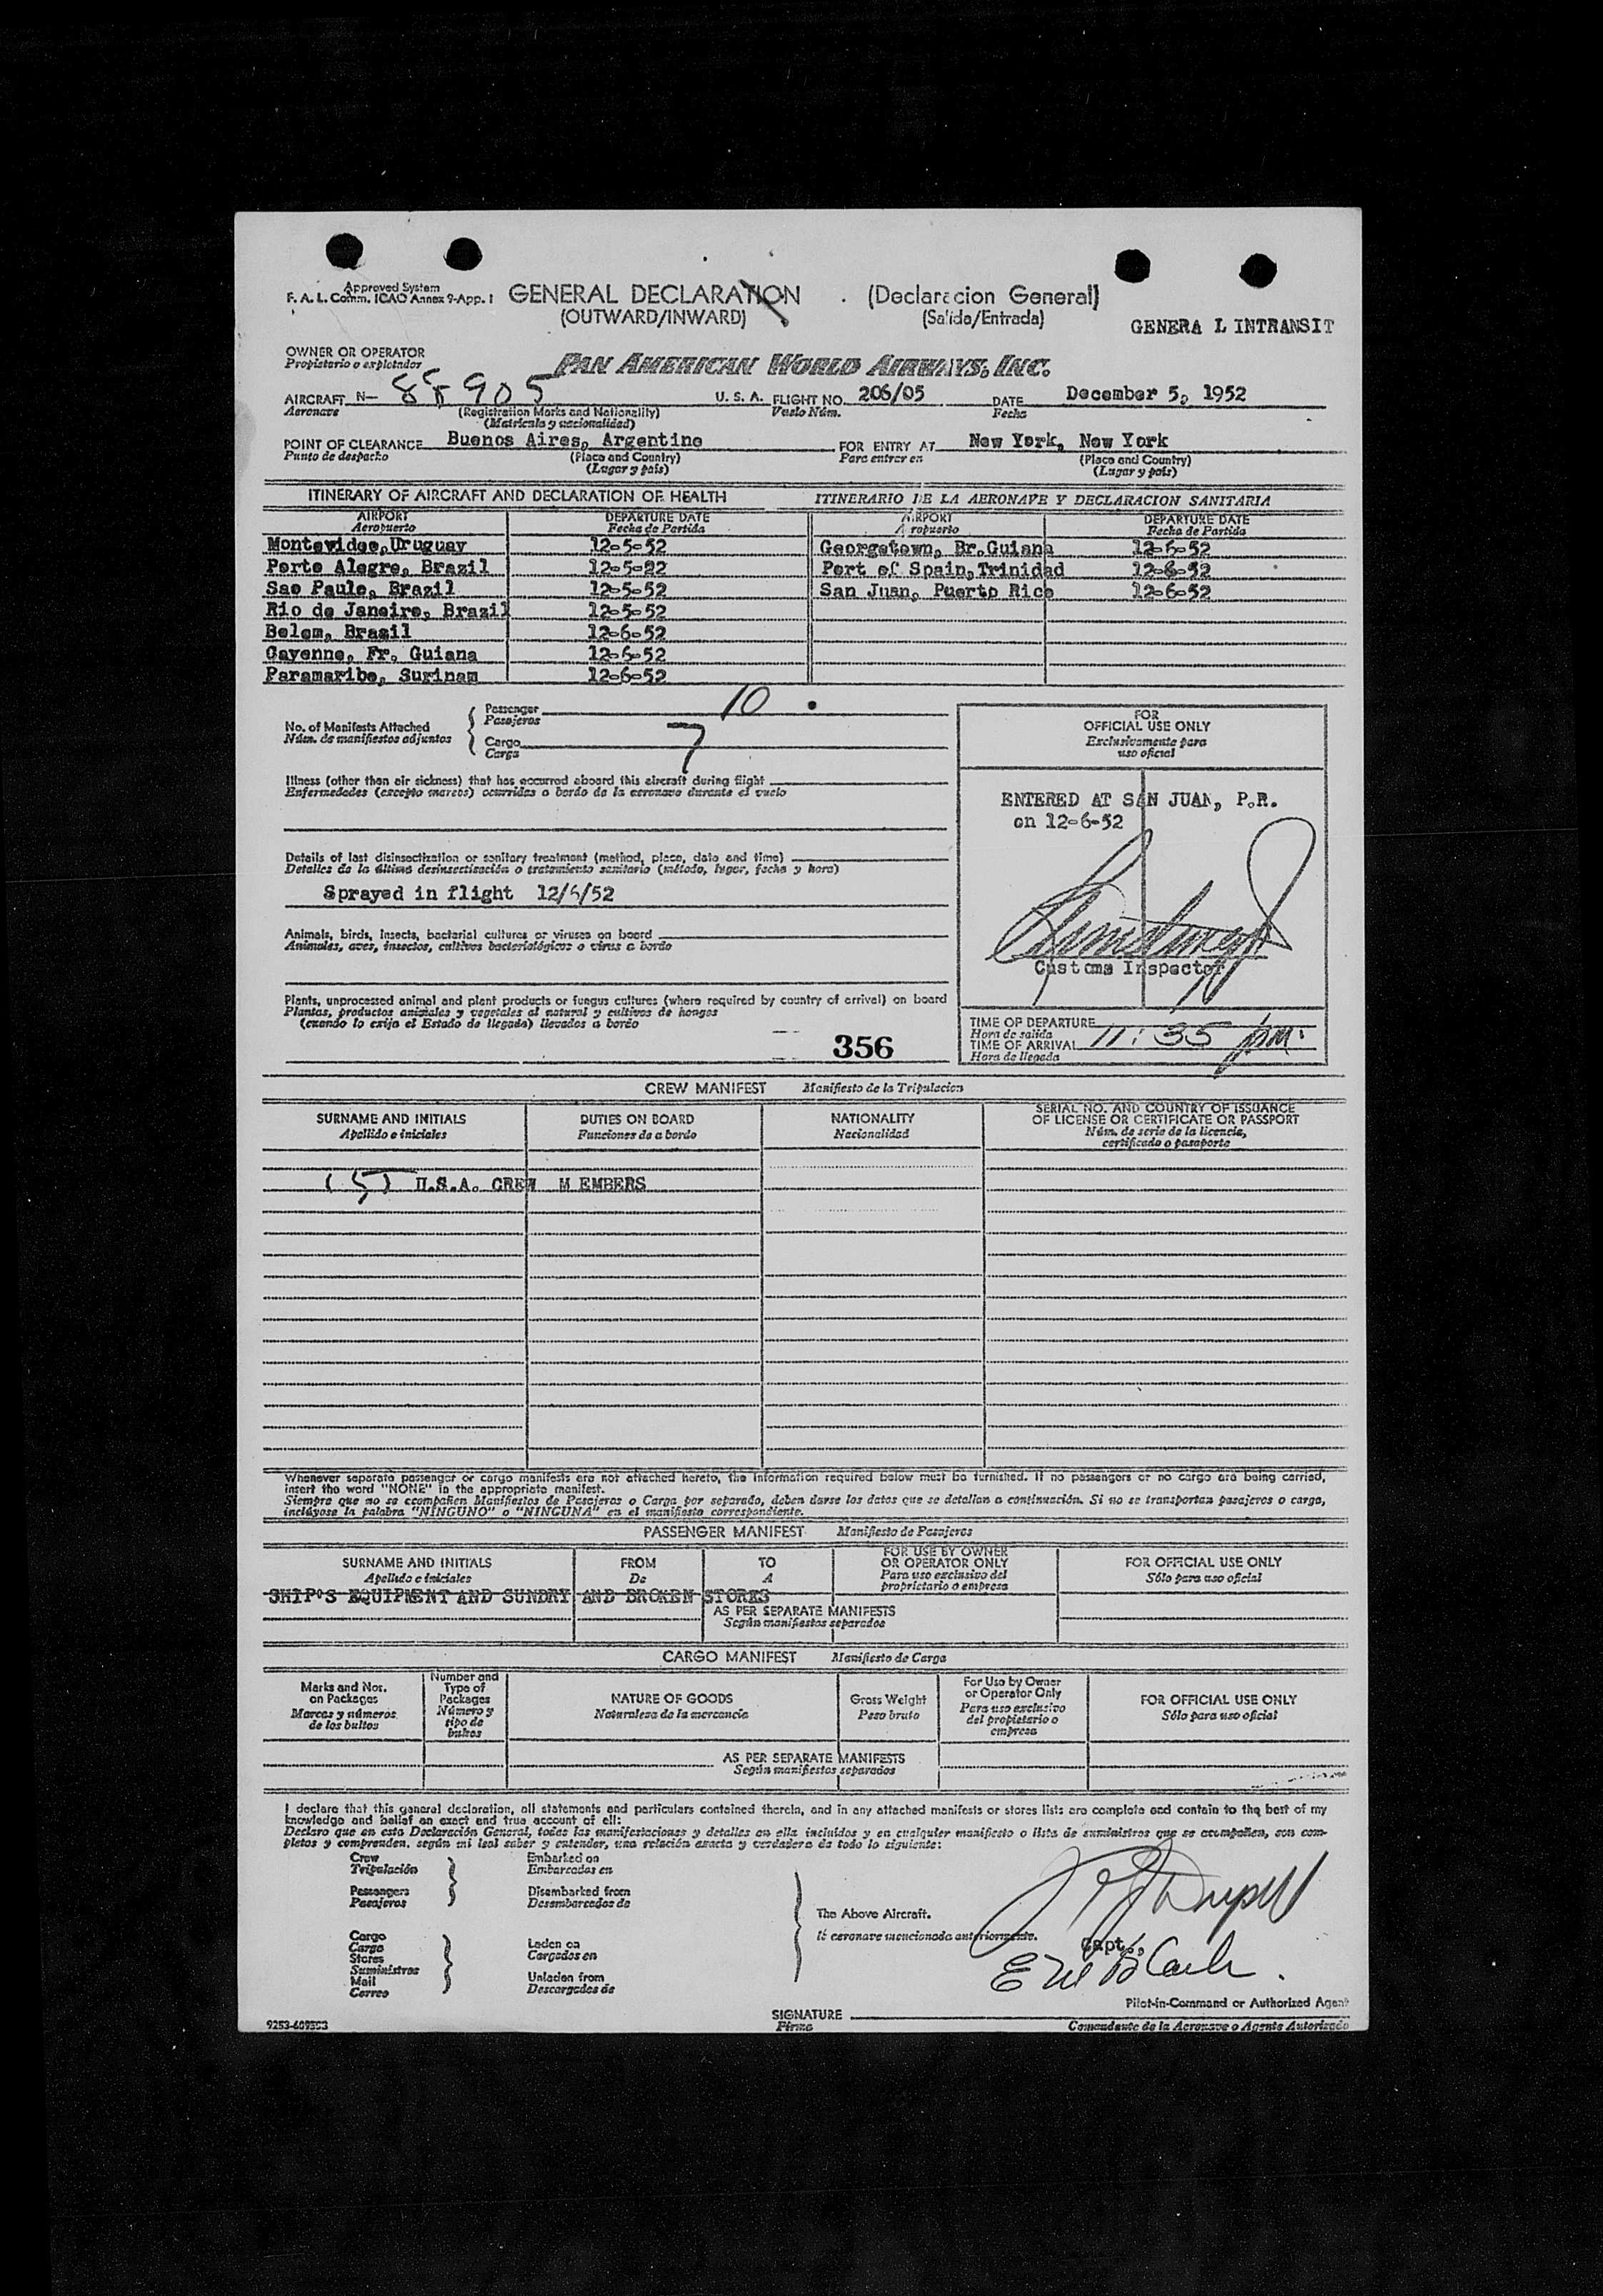 Approved System
F. A. L. Comm. ICAO Annex 9-App. I
GENERAL DECLARATION (Declaracion General)
(OUTWARD/INWARD) (Salida/Entrada)
GENERA L INTRANSIT
OWNER OR OPERATOR
Propietario o explotador
PAN AMERICAN WORLD AIRWAYS, INC.
AIRCRAFT N- 88905 U. S. A. FLIGHT NO. 206/05 DATE December 5, 1952
Aeronave (Registration Marks and Nationality) Vuelo Núm. Fecha
(Matricula y nacionalidad)
POINT OF CLEARANCE Buenos Aires, Argentine FOR ENTRY AT New York, New York
Punto de despacho (Place and Country) Para entrar en (Place and Country)
(Lugar y pais) (Lugar y pais)
ITINERARY OF AIRCRAFT AND DECLARATION OF HEALTH ITINERARIO DE LA AERONAVE Y DECLARACION SANITARIA
AIRPORT DEPARTURE DATE AIRPORT DEPARTURE DATE
Aeropuerto Fecha de Partida A ropuerto Fecha de Partida
Montevideo, Uruguay 12-5-52 Georgetown, Br. Guiana 12-6-52
Porto Alegre, Brazil 12-5-52 Port of Spain, Trinidad 12-6-52
Sao Paulo, Brazil 12-5-52 San Juan, Puerto Rico 12-6-52
Rio de Janeiro, Brazil 12-5-52
Belem, Brasil 12-6-52
Cayenne, Fr. Guiana 12-6-52
Paramaribo, Surinam 12-6-52
No. of Manifests Attached
Núm. de manifiestos adjuntos
Passenger 10
Pasajeros
Cargo 7
Carga
Illness (other than air sickness) that has occurred aboard this aircraft during flight
Enfermedades (excepto mareos) ocurridas a bordo de la aeronave durante el vuelo
Details of last disinsectization or sanitary treatment (method, place, date and time)
Detalles de la última desinsectización o tratamiento sanitario (método, lugar, fecha y hora)
Sprayed in flight 12/6/52
Animals, birds, insects, bacterial cultures or viruses on board
Animales, aves, insectos, cultivos bacteriológicos o virus a bordo
Plants, unprocessed animal and plant products or fungus cultures (where required by country of arrival) on board
Plantas, productos animales y vegetales al natural y cultivos de hongos
(cuando lo exija el Estado de llegada) llevados a bordo
356
FOR
OFFICIAL USE ONLY
Exclusivamente para
uso oficial
ENTERED AT SAN JUAN, P.R.
on 12-6-52
Customs Inspector
TIME OF DEPARTURE
Hora de salida
TIME OF ARRIVAL 11:35 pm.
Hora de llegada
CREW MANIFEST Manifiesto de la Tripulacion
SURNAME AND INITIALS DUTIES ON BOARD NATIONALITY SERIAL NO. AND COUNTRY OF ISSUANCE
OF LICENSE OR CERTIFICATE OR PASSPORT
Apellido e iniciales Funciones de a bordo Nacionalidad Núm. de serie de la licencia,
certificado o pasaporte
(5) U.S.A. CREW M EMBERS
Whenever separate passenger or cargo manifests are not attached hereto, the information required below must be furnished. If no passengers or no cargo are being carried,
insert the word "NONE" in the appropriate manifest.
Siempre que no se acompañen Manifiestos de Pasajeros o Carga por separado, deben darse los datos que se detallan a continuación. Si no se transportan pasajeros o carga,
inclúyase la palabra "NINGUNO" o "NINGUNA" en el manifiesto correspondiente.
PASSENGER MANIFEST Manifiesto de Pasajeros
SURNAME AND INITIALS FROM TO FOR USE BY OWNER
OR OPERATOR ONLY FOR OFFICIAL USE ONLY
Apellido e iniciales De A Para uso exclusivo del
propietario o empresa Sólo para uso oficial
SHIP'S EQUIPMENT AND SUNDRY AND BROKEN STORES
AS PER SEPARATE MANIFESTS
Según manifiestos separados
CARGO MANIFEST Manifiesto de Carga
Marks and Nos.
on Packages
Marcas y números
de los bultos
Number and
Type of
Packages
Número y
tipo de
bultos
NATURE OF GOODS
Naturaleza de la mercancia
Gross Weight
Peso bruto
For Use by Owner
or Operator Only
Para uso exclusivo
del propietario o
empresa
FOR OFFICIAL USE ONLY
Sólo para uso oficial
AS PER SEPARATE MANIFESTS
Según manifiestos separados
I declare that this general declaration, all statements and particulars contained therein, and in any attached manifests or stores lists are complete and contain to the best of my
knowledge and belief an exact and true account of all:
Declaro que en esta Declaración General, todas las manifestaciones y detalles en ella incluidos y en cualquier manifiesto o lista de suministros que se acompañen, son com-
pletos y comprenden, según mi leal saber y entender, una relación exacta y verdadera de todo lo siguiente:
Crew
Tripulación
Passengers
Pasajeros
Cargo
Carga
Stores
Suministros
Mail
Correo
Embarked on
Embarcados en
Disembarked from
Desembarcados de
Laden on
Cargados en
Unladen from
Descargados de
The Above Aircraft.
la aeronave mencionada anteriormente.
Capt.
Pilot-in-Command or Authorized Agent
SIGNATURE
Firma
Comandante de la Aeronave o Agente Autorizado